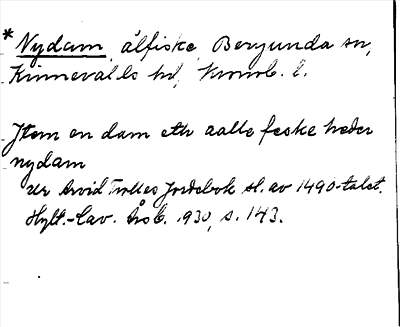 * Nydam, ålfiske, Bergunda sn,
Kinnevalds hd, Kronob. l.
Jtem en dam eth aalle feske heder
nydam
Ur Arvid Trolles Jordebok sl. av 1490-talet.
Hylt.-Cav. Årsb. 1930, s. 143.